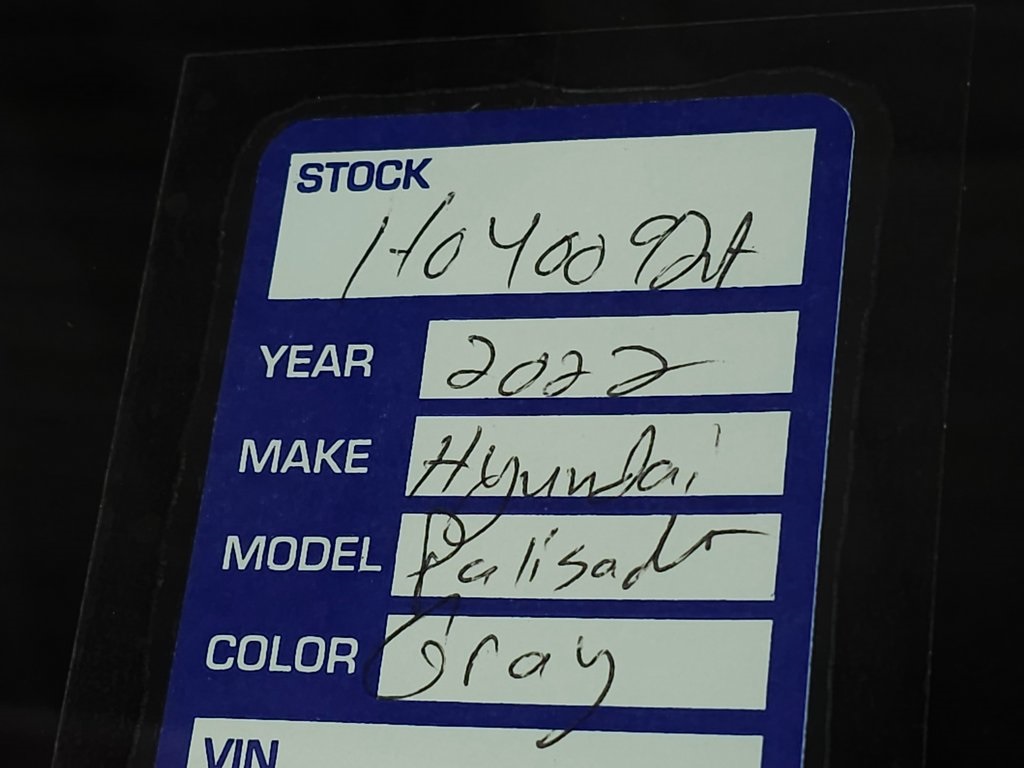 STOCK
H040092A
YEAR 2022
MAKE Hyundai
MODEL Palisade
COLOR Gray
VIN